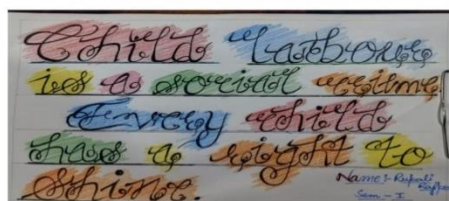 Child labour
is a social crime
Every child
has a right to
shine.
Name:- Rupali
Sem - I